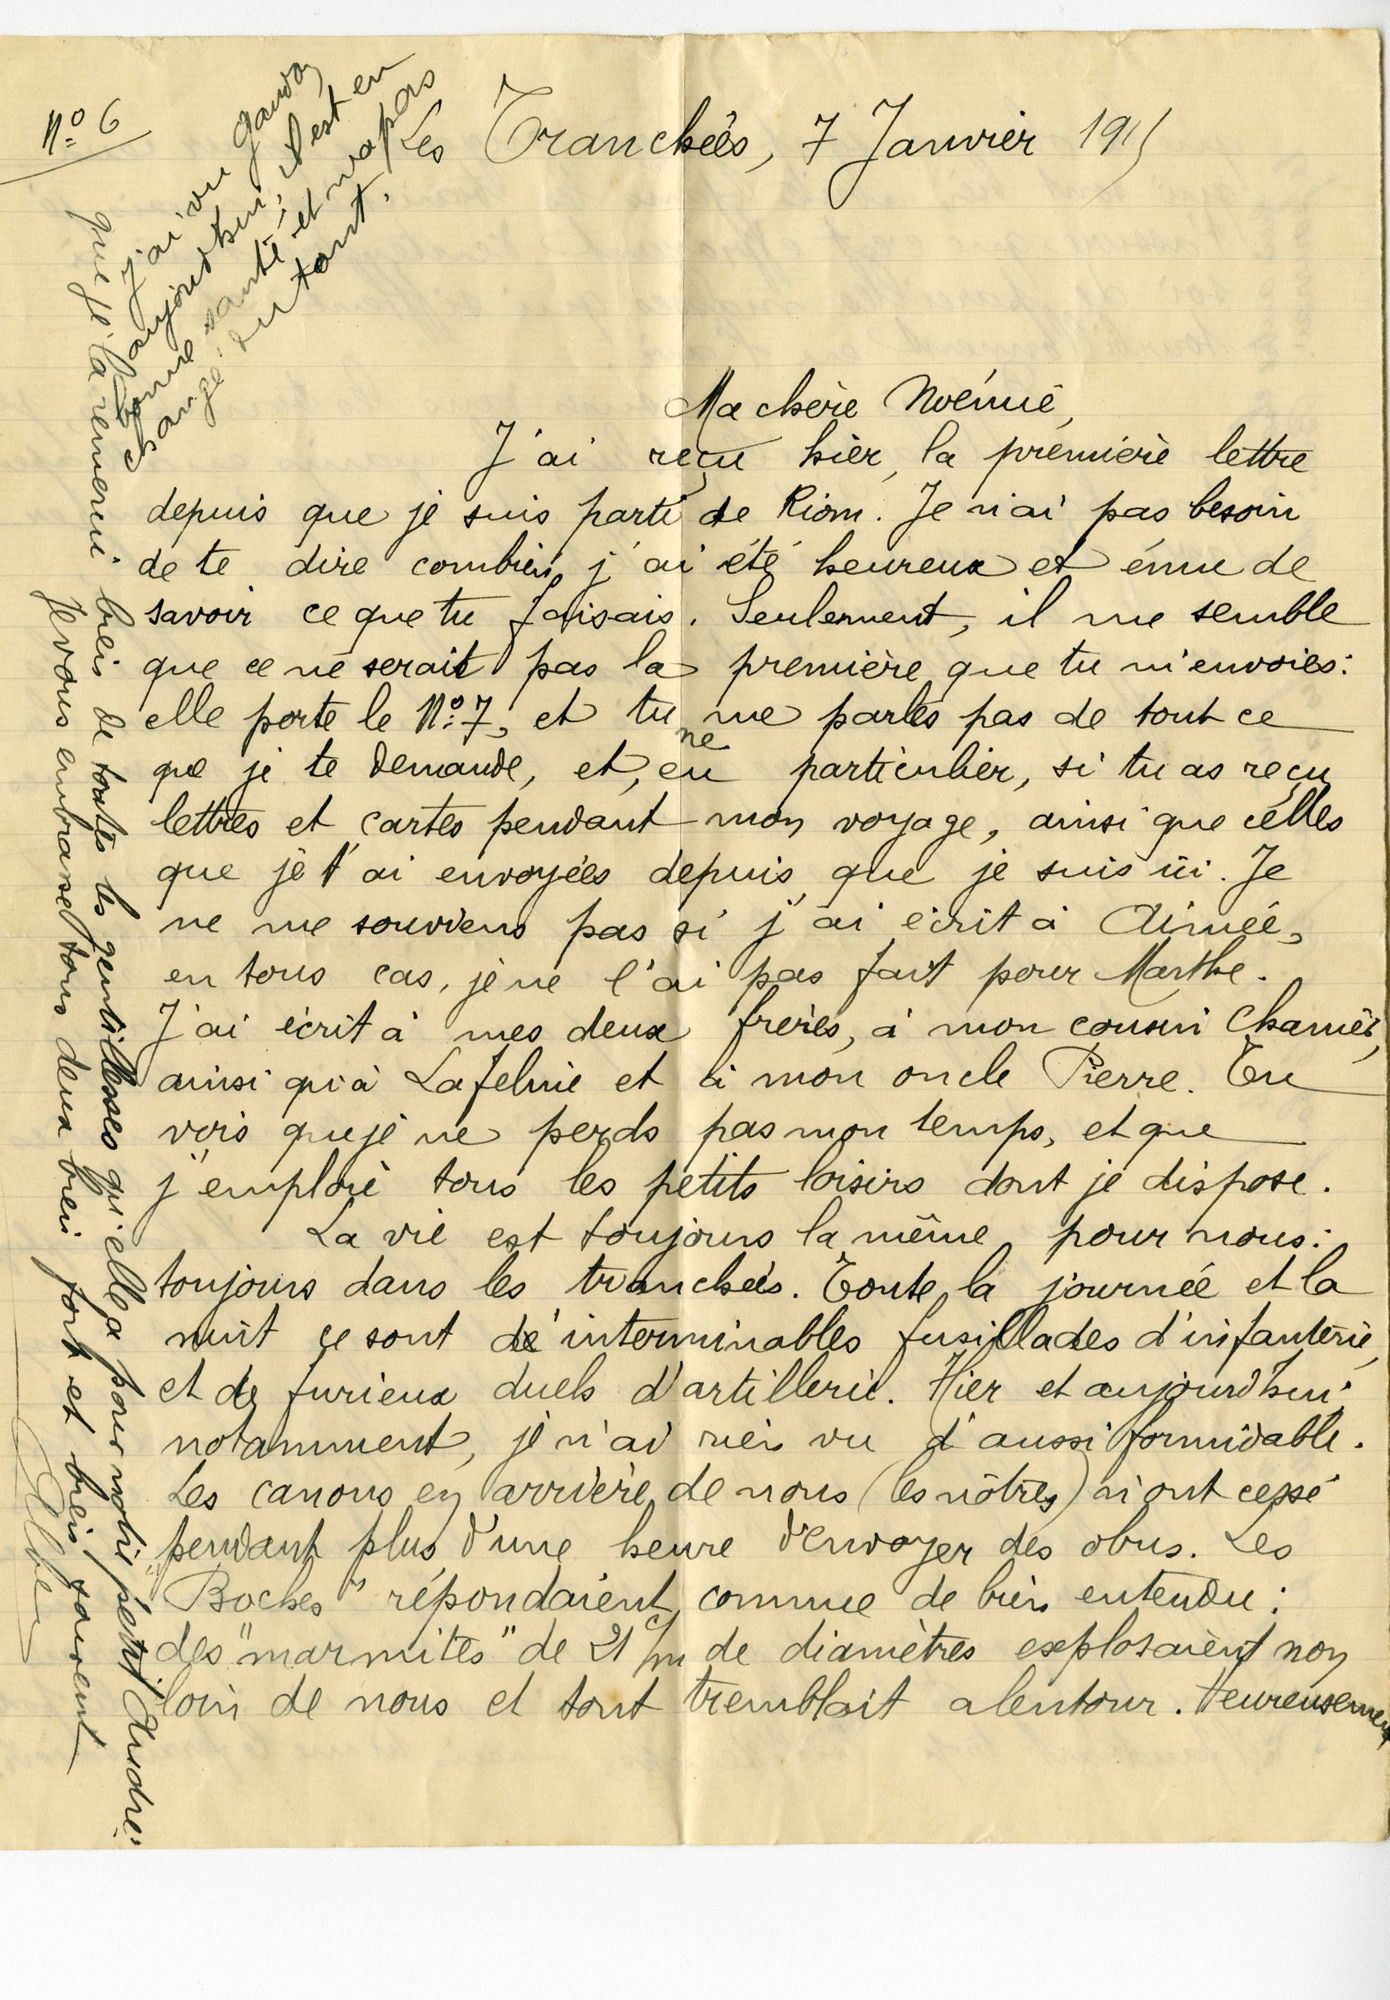 N° 6
Les Tranchées, 7 Janvier 1915
J'ai vu Gaudon
aujourd'hui, il est en
bonne santé et n'a pas
changé du tout.
Ma chère Noémie,
J'ai reçu hier, la première lettre
depuis que je suis parti de Riom. Je n'ai pas besoin
de te dire combien j'ai été heureux et ému de
savoir ce que tu faisais. Seulement, il me semble
que ce ne serait pas la première que tu m'envoies:
elle porte le N° 7, et tu ne me parles pas de tout ce
que je te demande, et, en particulier, si tu as reçu
lettres et cartes pendant mon voyage, ainsi que celles
que je t'ai envoyées depuis que je suis ici. Je
ne me souviens pas si j'ai écrit à Aimée,
en tous cas, je ne l'ai pas fait pour Marthe.
J'ai écrit à mes deux frères, à mon cousin
ainsi qu'à Lafelnie et à mon oncle Pierre. Tu
vois que je ne perds pas mon temps, et que
j'emploie tous les petits loisirs dont je dispose.
La vie est toujours la même pour nous:
toujours dans les tranchées. Toute la journée et la
nuit ce sont d'interminables fusillades d'infanterie,
et de furieux duels d'artillerie. Hier et aujourd'hui
notamment, je n'ai rien vu d'aussi formidable.
Les canons en arrière de nous (les nôtres) n'ont cessé
pendant plus d'une heure d'envoyer des obus. Les
"Boches" répondaient comme de bien entendu:
des "marmites" de 21 c/m de diamètres explosaient non
loin de nous et tout tremblait alentour. Heureusement
que je la remercie bien de toutes les gentillesses qu'elle a pour notre petit André.
Je vous embrasse tous deux bien fort et bien souvent